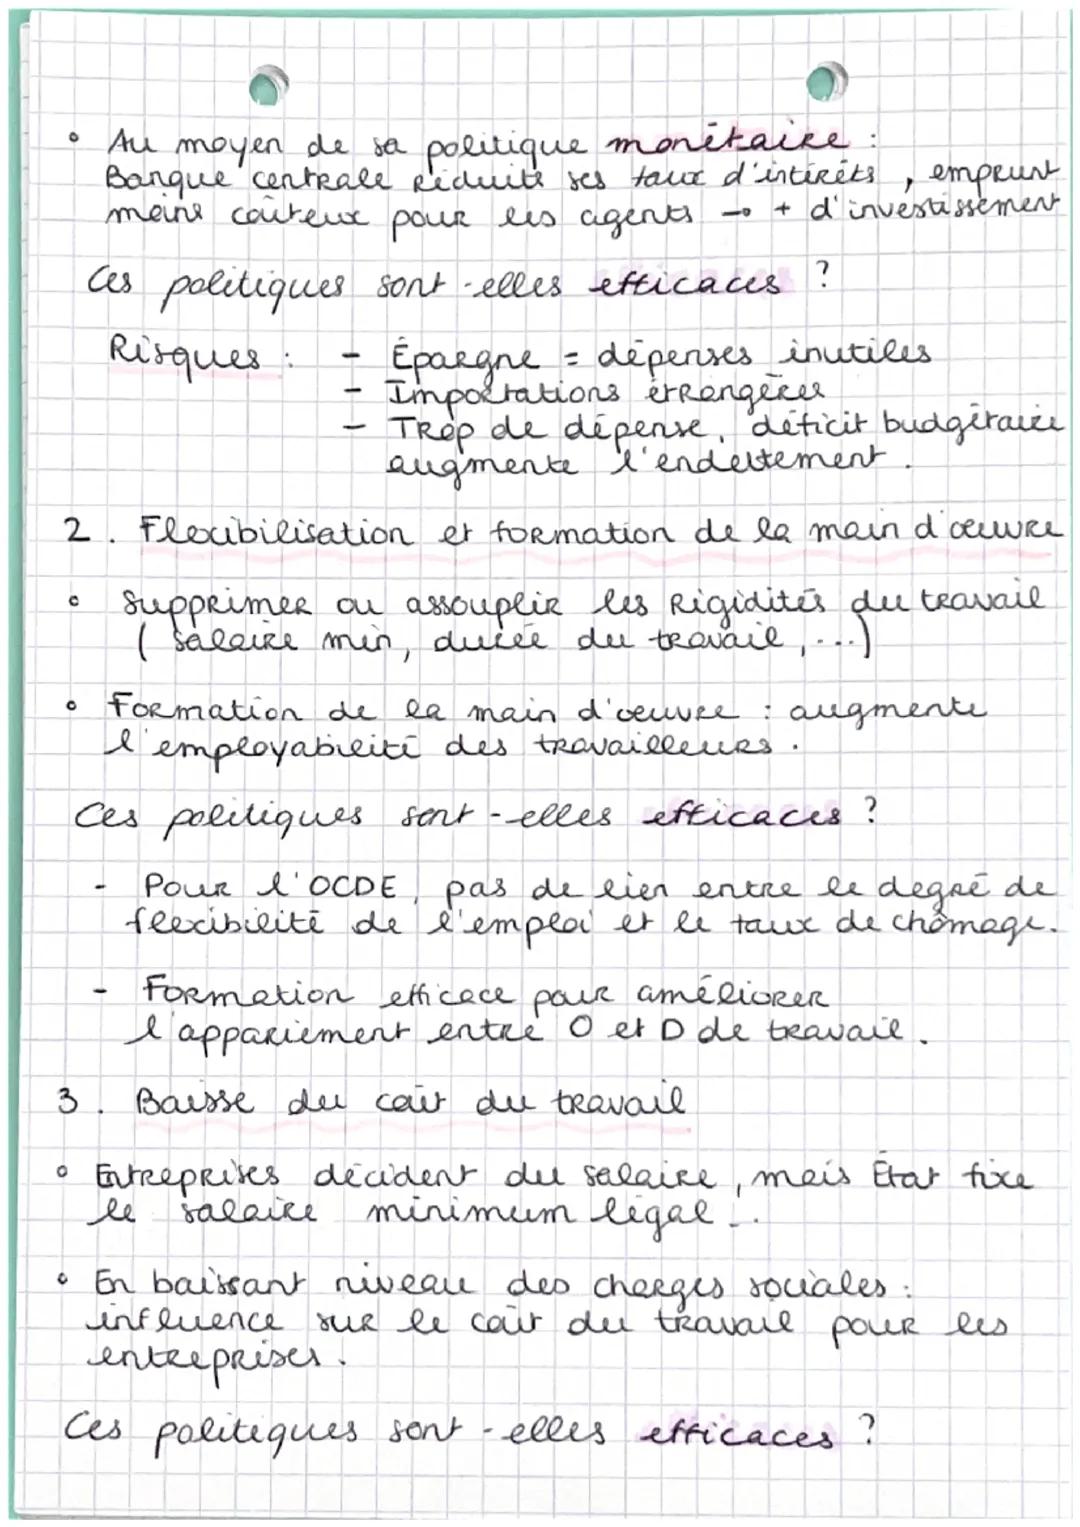 • Au moyen de sa politique monétaire :
Banque centrale réduite ses taux d'intérêts, emprunt
moins coûteux pour les agents → + d'investissement
Ces politiques sont-elles efficaces ?
Risques : - Épargne = dépenses inutiles
- Importations étrangères
- Trop de dépense, déficit budgétaire
augmente l'endettement.
2. Flexibilisation et formation de la main d'œuvre
• Supprimer ou assouplir les rigidités du travail
( salaire min, durée du travail, ...)
• Formation de la main d'œuvre : augmente
l'employabilité des travailleurs.
Ces politiques sont-elles efficaces ?
- Pour l'OCDE, pas de lien entre le degré de
flexibilité de l'emploi et le taux de chômage.
- Formation efficace pour améliorer
l'appariement entre O et D de travail.
3. Baisse du coût du travail
• Entreprises décident du salaire, mais État fixe
le salaire minimum légal...
• En baissant niveau des charges sociales :
influence sur le coût du travail pour les
entreprises.
Ces politiques sont-elles efficaces ?